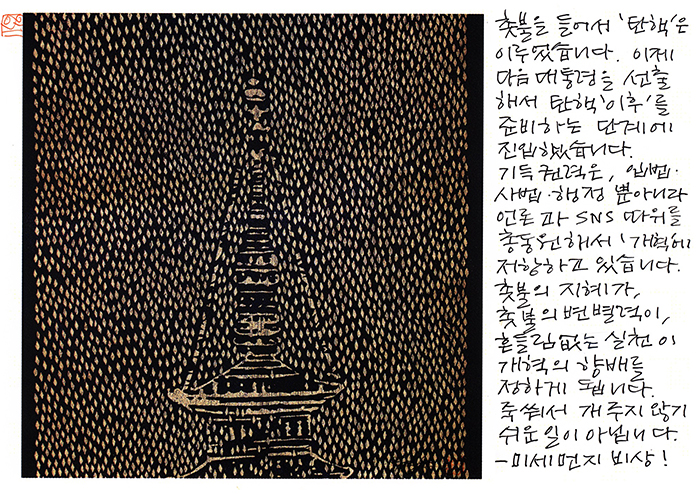 촛불을 들어서 '탄핵'은
이루었습니다. 이제
다음 대통령을 선출
해서 탄핵'이후'를
준비하는 단계에
진입했습니다.
기득권력은, 입법·
사법·행정 뿐아니라
언론과 SNS 따위를
총동원해서 '개혁'에
저항하고 있습니다.
촛불의 지혜가,
촛불의 변별력이,
흔들림없는 실천이
개혁의 향배를
정하게 됩니다.
죽쒀서 개주지 않기
쉬운 일이 아닙니다.
-미세먼지 비상!